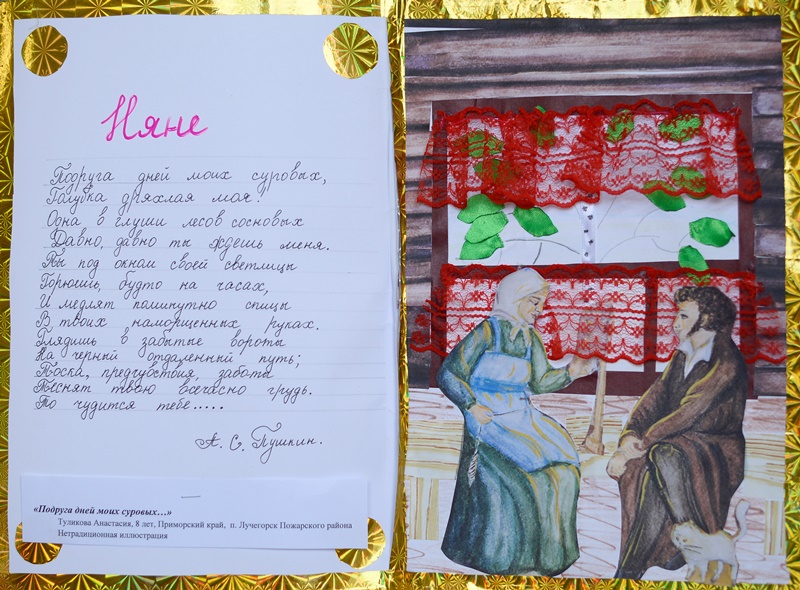 Няне
Подруга дней моих суровых,
Голубка дряхлая моя!
Одна в глуши лесов сосновых
Давно, давно ты ждёшь меня.
Ты под окном своей светлицы
Горюешь, будто на часах,
И медлят поминутно спицы
В твоих наморщенных руках.
Глядишь в забытые вороты
На черный отдаленный путь;
Тоска, предчувствия, заботы
Теснят твою всечасно грудь.
То чудится тебе.....
А. С. Пушкин.
«Подруга дней моих суровых…»
Туликова Анастасия, 8 лет, Приморский край, п. Лучегорск Пожарского района
Нетрадиционная иллюстрация